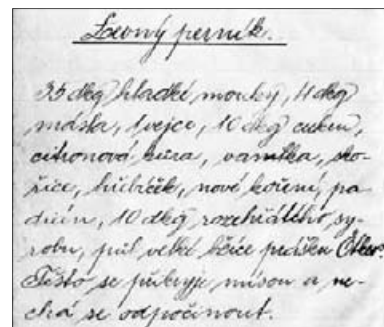 perník.
35 dkg hladké mouky, 4 dkg
másla, 1 vejce, 10 dkg cukru,
citronová kůra, vanilka, sko-
řice, hřebíček, nové koření, ba-
dián, 10 dkg rozehřátého sy-
robu, půl velké lžíce prášku
Těsto se přikryje mísou a ne-
chá se odpočinout.